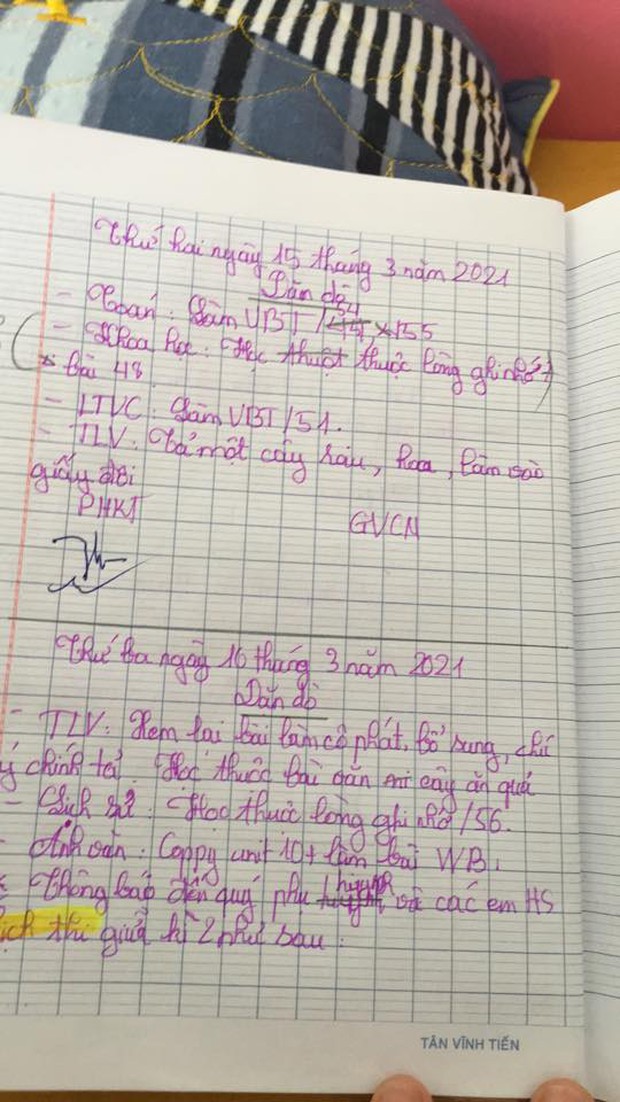 Thứ hai ngày 15 tháng 3 năm 2021
Dặn dò
- Toán: Làm VBT / 54 + 55
- Khoa học: Học thuột thuộc lòng ghi nhớ
bài 48
- LTVC: Làm VBT / 51.
- TLV: Tả một cây rau, hoa, làm vào
giấy đôi
PHKT GVCN
Thứ ba ngày 16 tháng 3 năm 2021
Dặn dò
- TLV: Xem lại bài làm cô phát, bổ sung, chú
ý chính tả. Học thuộc bài văn cây ăn quả
- Lịch sử: Học thuộc lòng ghi nhớ / 56.
- Anh văn: Coppy unit 10 + làm bài WB.
Thông báo đến quý phụ huynh và các em HS
lịch thi giữa kì 2 như sau:
TÂN VĨNH TIẾN